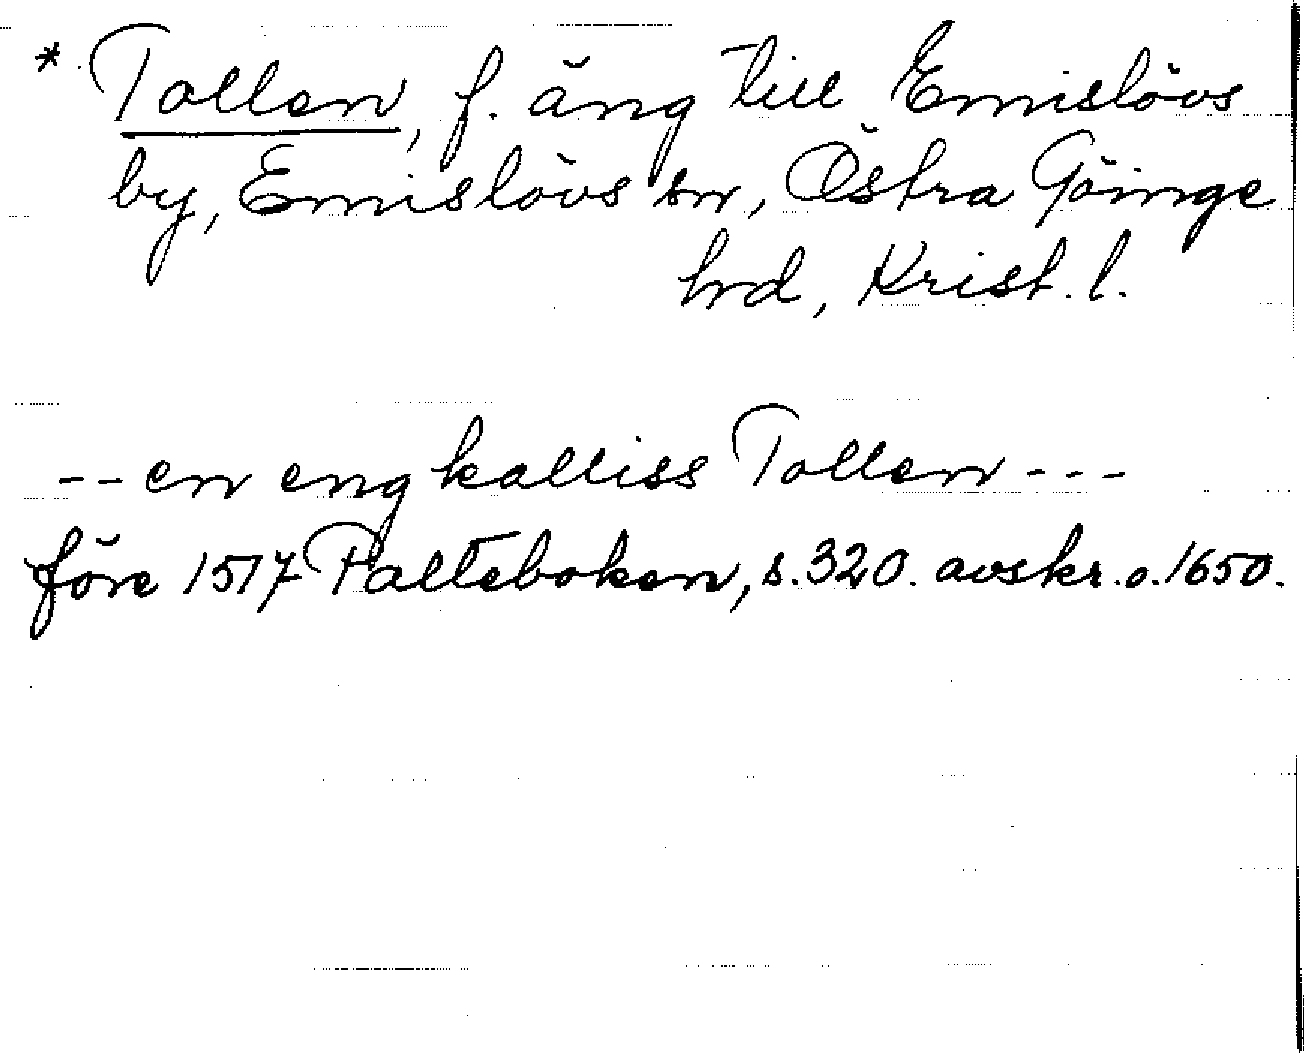 * Tollen, f. äng till Emislövs
by, Emislövs sn, Östra Göinge
hrd, Krist. l.
-- en eng kalliss Tollen ---
före 1517 Palteboken, s. 320. avskr. o. 1650.